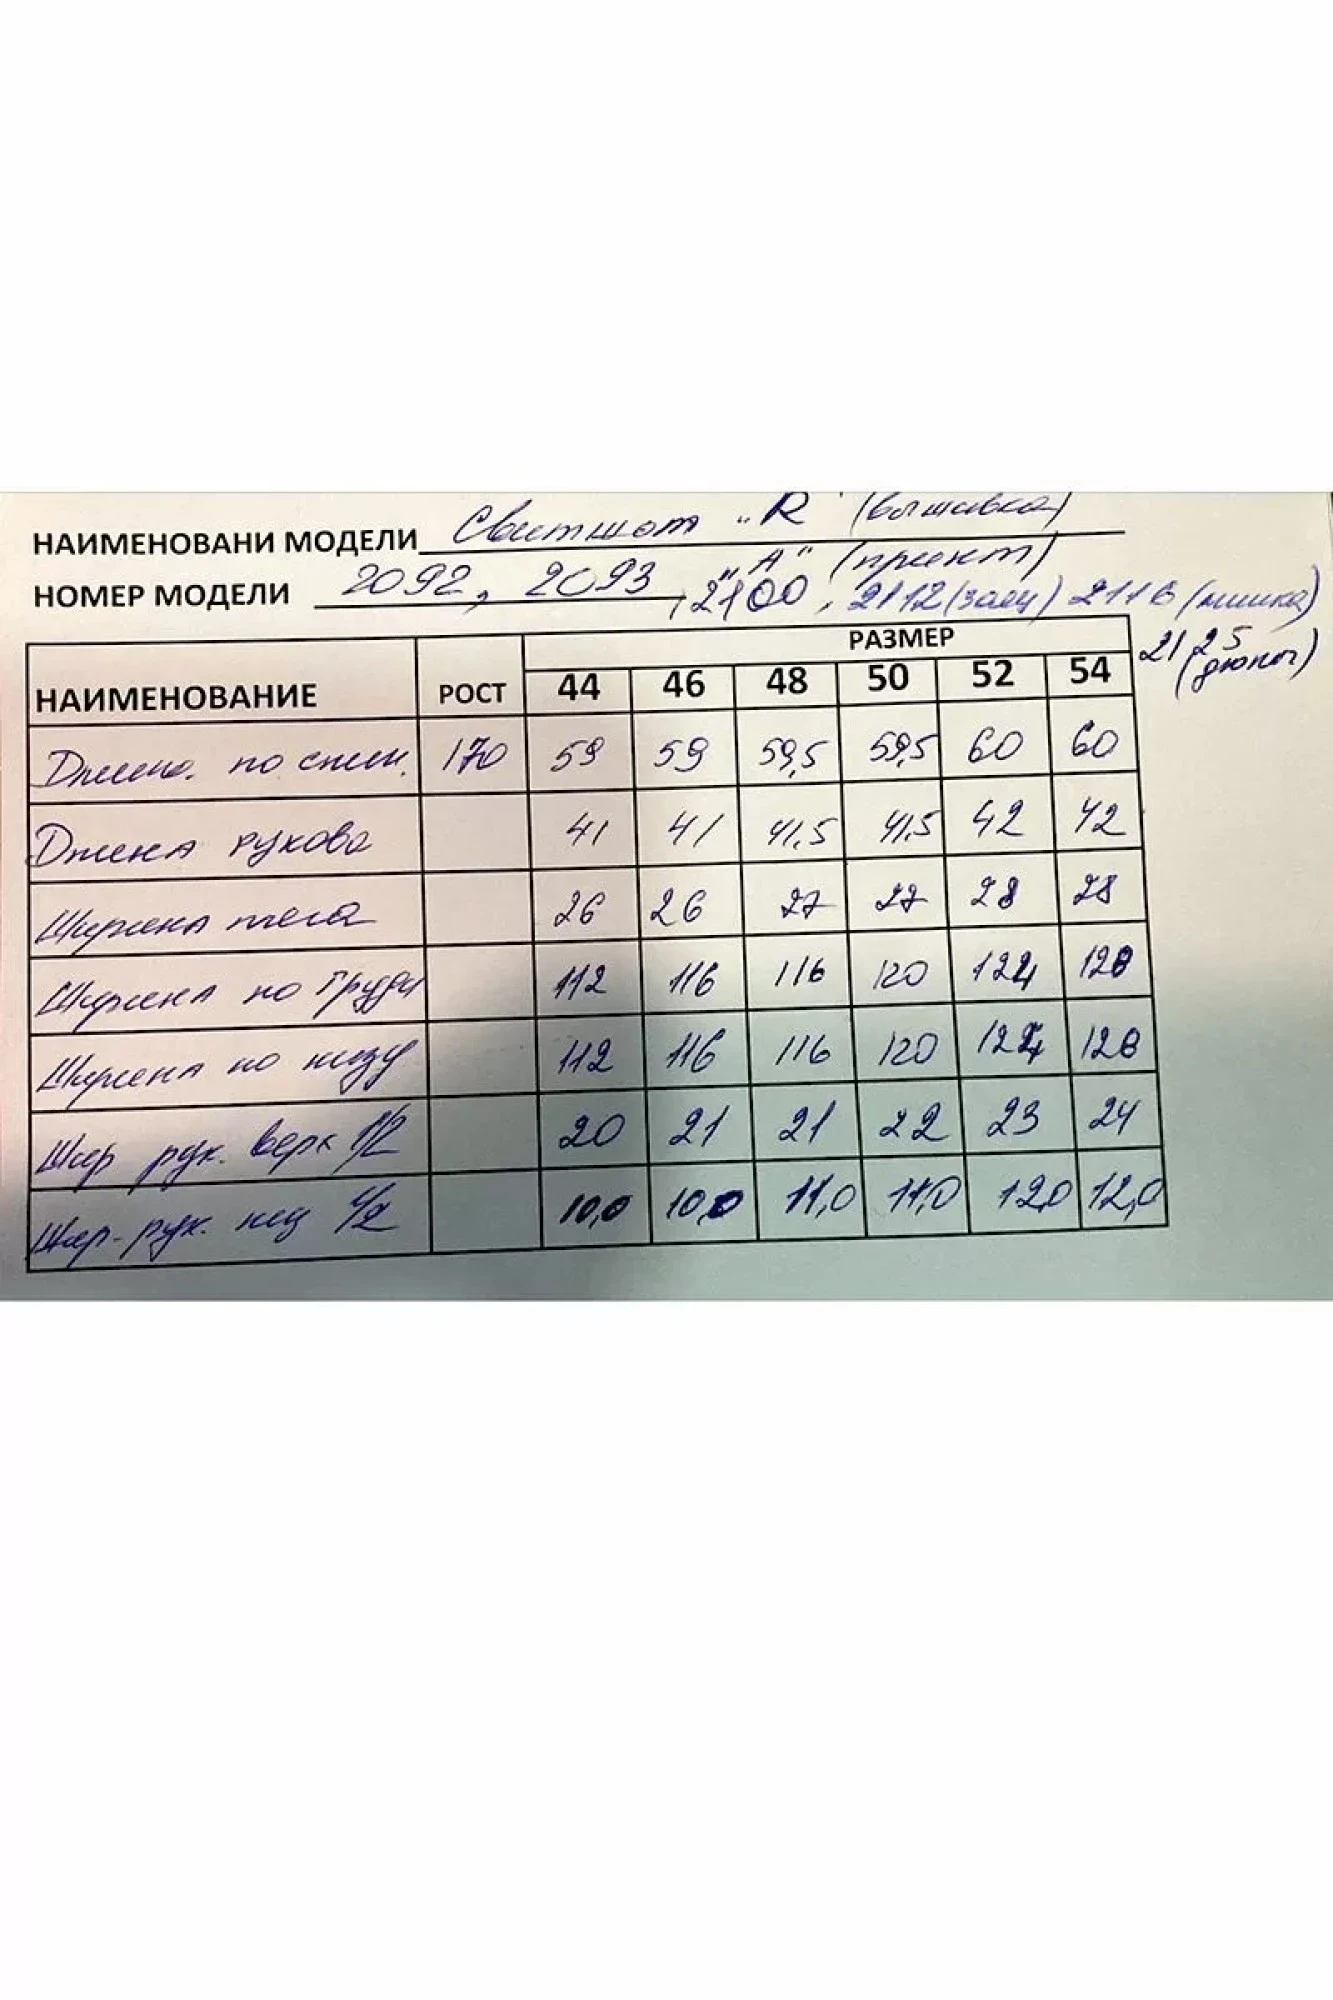 НАИМЕНОВАНИ МОДЕЛИ Свитшот „R" (вышивка)
„А" (принт)
НОМЕР МОДЕЛИ 2092, 2093, 2100, 2112 (заяц) 2116 (мишка)
2125
НАИМЕНОВАНИЕ РОСТ РАЗМЕР
44 46 48 50 52 54
Длина по спин. 170 59 59 59,5 59,5 60 60
Длина рукава 41 41 41,5 41,5 42 42
Ширина плеча 26 26 27 27 28 28
Ширина по груди 112 116 116 120 124 128
Ширина по низу 112 116 116 120 124 128
Шир рук. верх 1/2 20 21 21 22 23 24
Шир. рук. низ 1/2 10,0 10,0 11,0 11,0 12,0 12,0